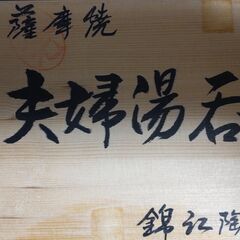 薩摩焼
夫婦湯呑
錦江陶